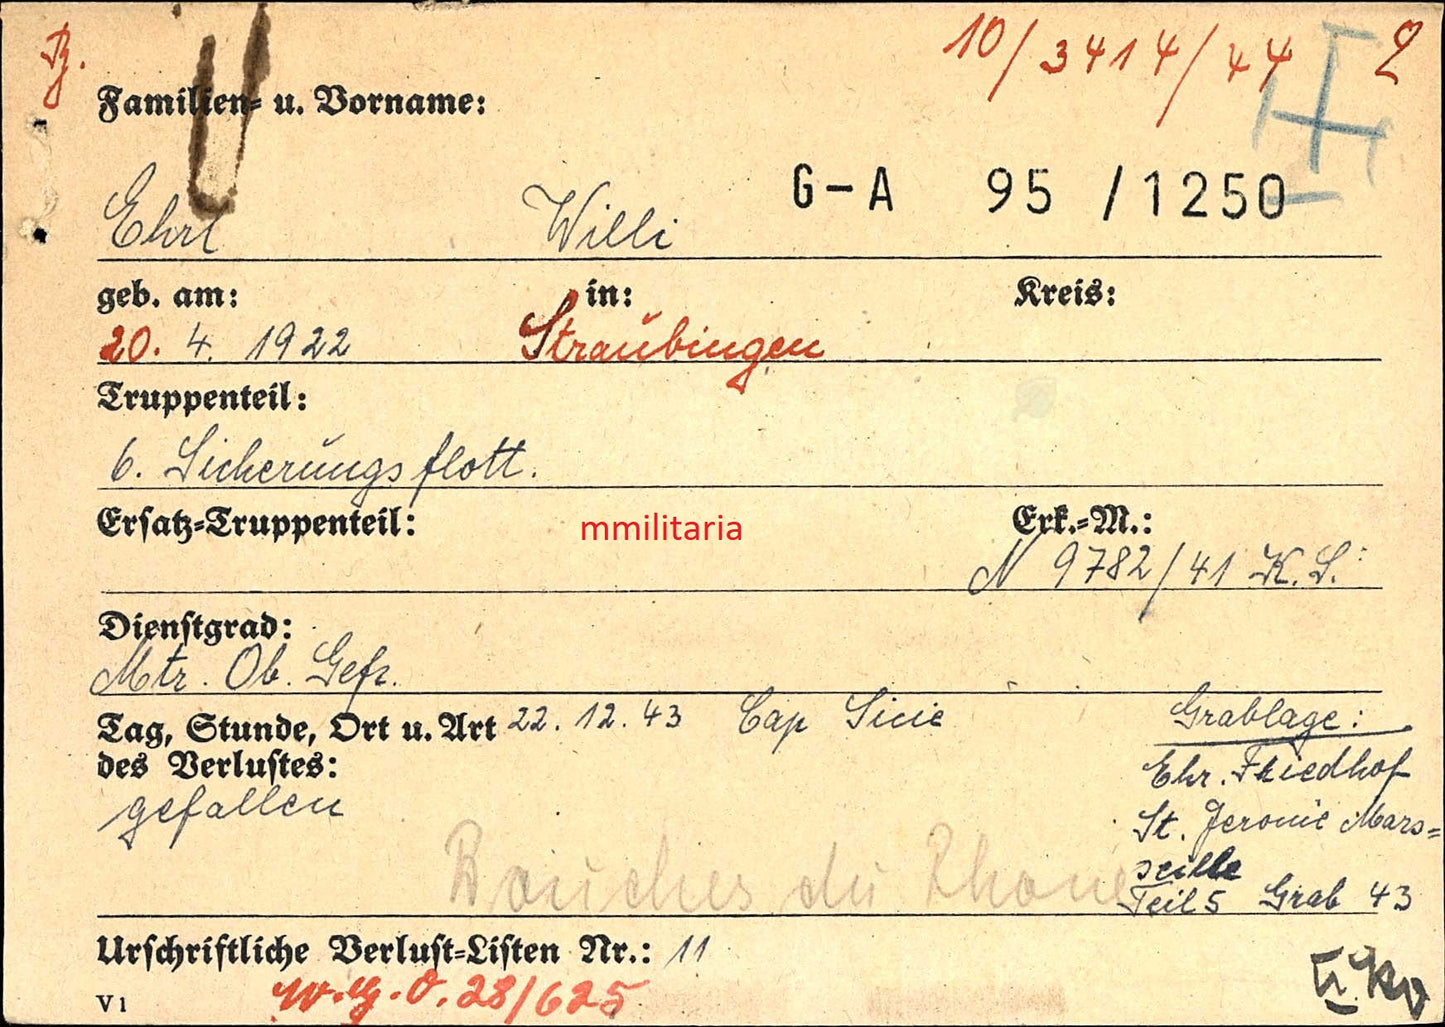 10/3414/44 2
Familien- u. Vorname:
G-A 95 /1250
Ehrl Willi
geb. am: in: Kreis:
20. 4. 1922 Straubingen
Truppenteil:
6. Sicherungsflott.
Ersatz-Truppenteil: mmilitaria Erk.-M.:
N 9782/41 K. S.
Dienstgrad:
Mtr. Ob. Gefr.
Tag, Stunde, Ort u. Art 22. 12. 43 Cap Sicie
des Verlustes:
gefallen
Grablage:
Ehr. Friedhof
St. Jeronie Mars=
seille
Teil 5 Grab 43
Bouches du Rhone
Urschriftliche Verlust-Listen Nr.: 11
V 1 W.G.O. 28/625